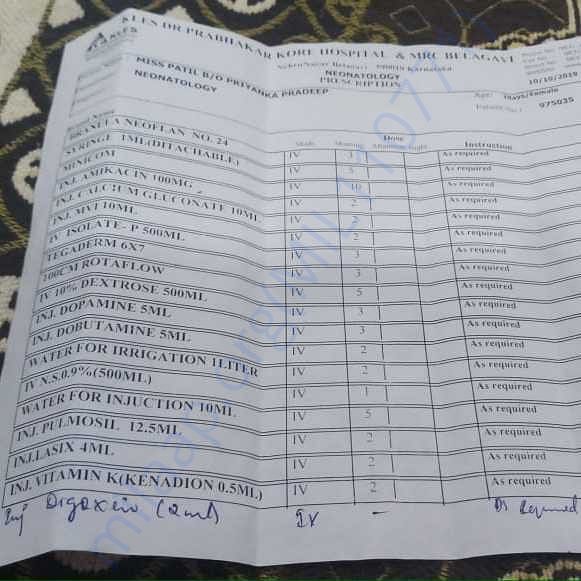 KLES DR PRABHAKAR KORE HOSPITAL & MRC BELAGAVI
Nehru Nagar Belagavi - 590010 Karnataka
NEONATOLOGY
PRESCRIPTION
10/10/2019
MISS PATIL B/O PRIYANKA PRADEEP
NEONATOLOGY
Age: Days/Female
975035
Dose
Morning Night Instruction
BRANULA NEOFLAN NO. 24 IV 3 As required
SYRINGE 1ML(DITACHABLE) IV 5 As required
MINICOM IV 10 As required
INJ. AMIKACIN 100MG IV 2 As required
INJ. CALCIUM GLUCONATE 10ML IV 2 As required
INJ. MVI 10ML IV 2 As required
IV ISOLATE- P 500ML IV 3 As required
TEGADERM 6X7 IV 3 As required
100CM ROTAFLOW IV 5 As required
IV 10% DEXTROSE 500ML IV 3 As required
INJ. DOPAMINE 5ML IV 3 As required
INJ. DOBUTAMINE 5ML IV 2 As required
WATER FOR IRRIGATION 1LITER IV 2 As required
IV N.S.0.9%(500ML) IV 1 As required
WATER FOR INJUCTION 10ML IV 5 As required
INJ. PULMOSIL 12.5ML IV 2 As required
INJ.LASIX 4ML IV 2 As required
INJ. VITAMIN K(KENADION 0.5ML) IV 2 As required
Inj Digoxin (2ml) IV - As Required